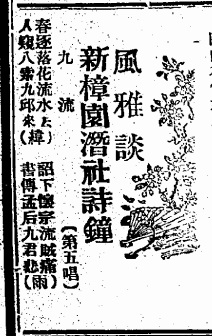 風雅談
新樟園潛社詩鐘
(第五唱)
九流
春逐落花流水去 詔下懷宗流賊痛 雨
人窺八索九邱來(緯 書傳孟后九君悲(